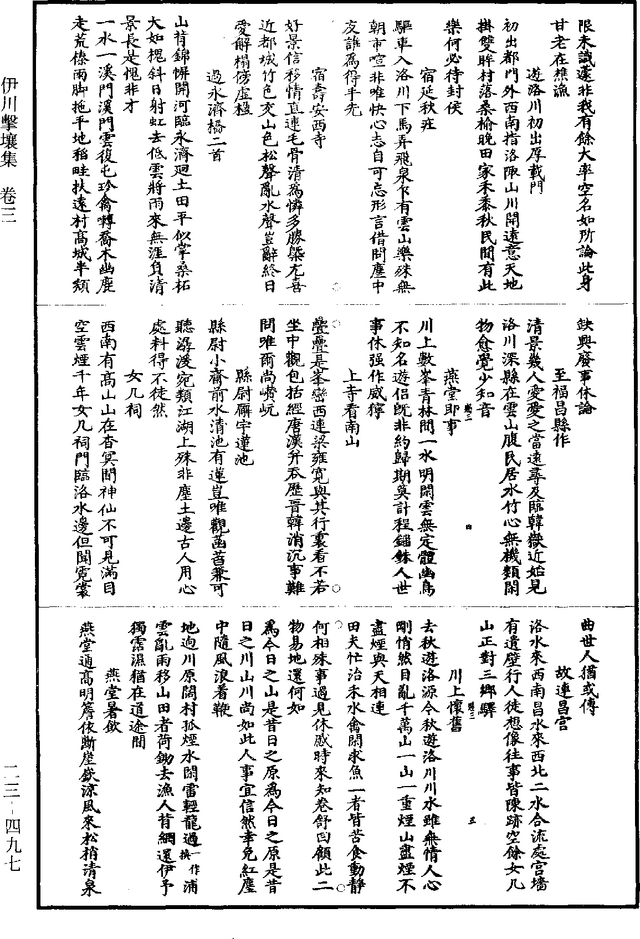 限未識還非我有餘大率空名如所論此身
甘老在樵漁
遊洛川初出厚載門
初出都門外西南指洛陬山川開遠意天地
掛雙眸村落桑榆晚田家禾黍秋民間有此
樂何必待封侯
宿延秋莊
驅車入洛川下馬弄飛泉乍有雲山樂殊無
朝市喧非唯快心志自可忘形言借問塵中
友誰為得手先
宿壽安西寺
好景信移情直連毛骨清為憐多勝槩尤喜
近都城竹色交山色松聲亂水聲豈辭終日
愛解榻傍虛楹
過永濟橋二首
山背錦幈開河臨永濟迴土田平似掌桑柘
大如槐斜日射虹去低雲將雨來無涯負清
景長是愧非才
一水一溪門溪門雲復屯珍禽轉喬木幽鹿
走荒榛雨脚拖平地稻畦扶遠村高城半頹
缺興廢事休論
至福昌縣作
清景幾人愛愛之當遠尋及臨韓嶽近始見
洛川深縣在雲山腹民居水竹心無機類閑
物愈覺少知音
燕堂即事
川上數峯青林間一水明閑雲無定體幽鳥
不知名遊侶旣非約歸期莫計程錙銖人世
事休强作威獰
上寺看南山
疊疊是峯巒西連梁雍寬與其行裏看不若
坐中觀包括經唐漢并吞歷晉韓消沉事難
問唯爾尚巑岏
縣尉廨宇蓮池
縣尉小齋前水清池有蓮豈唯觀菡萏兼可
聽潺湲宛類江湖上殊非塵土邊古人用心
處料得不徒然
女几祠
西南有高山山在杳冥間神仙不可見滿目
空雲煙千年女几祠門臨洛水邊但聞霓裳
曲世人猶或傳
故連昌宮
洛水來西南昌水來西北二水合流處宮墻
有遺壁行人徒想像往事皆陳跡空餘女几
山正對三鄉驛
川上懷舊
去秋遊洛源今秋遊洛川川水雖無情人心
剛悄然目亂千萬山一山一重煙山盡煙不
盡煙與天相連
田夫忙治禾水禽閑求魚一者皆苦食動靜
何相殊事過見休戚時來知卷舒囙顧此二
物易地還何如
為今日之山是昔日之原為今日之原是昔
日之川山川尚如此人事宜信然幸免紅塵
中隨風浪着鞭
地迥川原闊村孤煙水閑雷輕龍過一作換浦
雲亂雨移山田者荷鋤去漁人背網還伊予
獨霑濕猶在道途間
燕堂暑飲
燕堂通高明簷依斷崖嶔涼風來松梢清泉
伊川擊壤集 卷三
二三-四九七